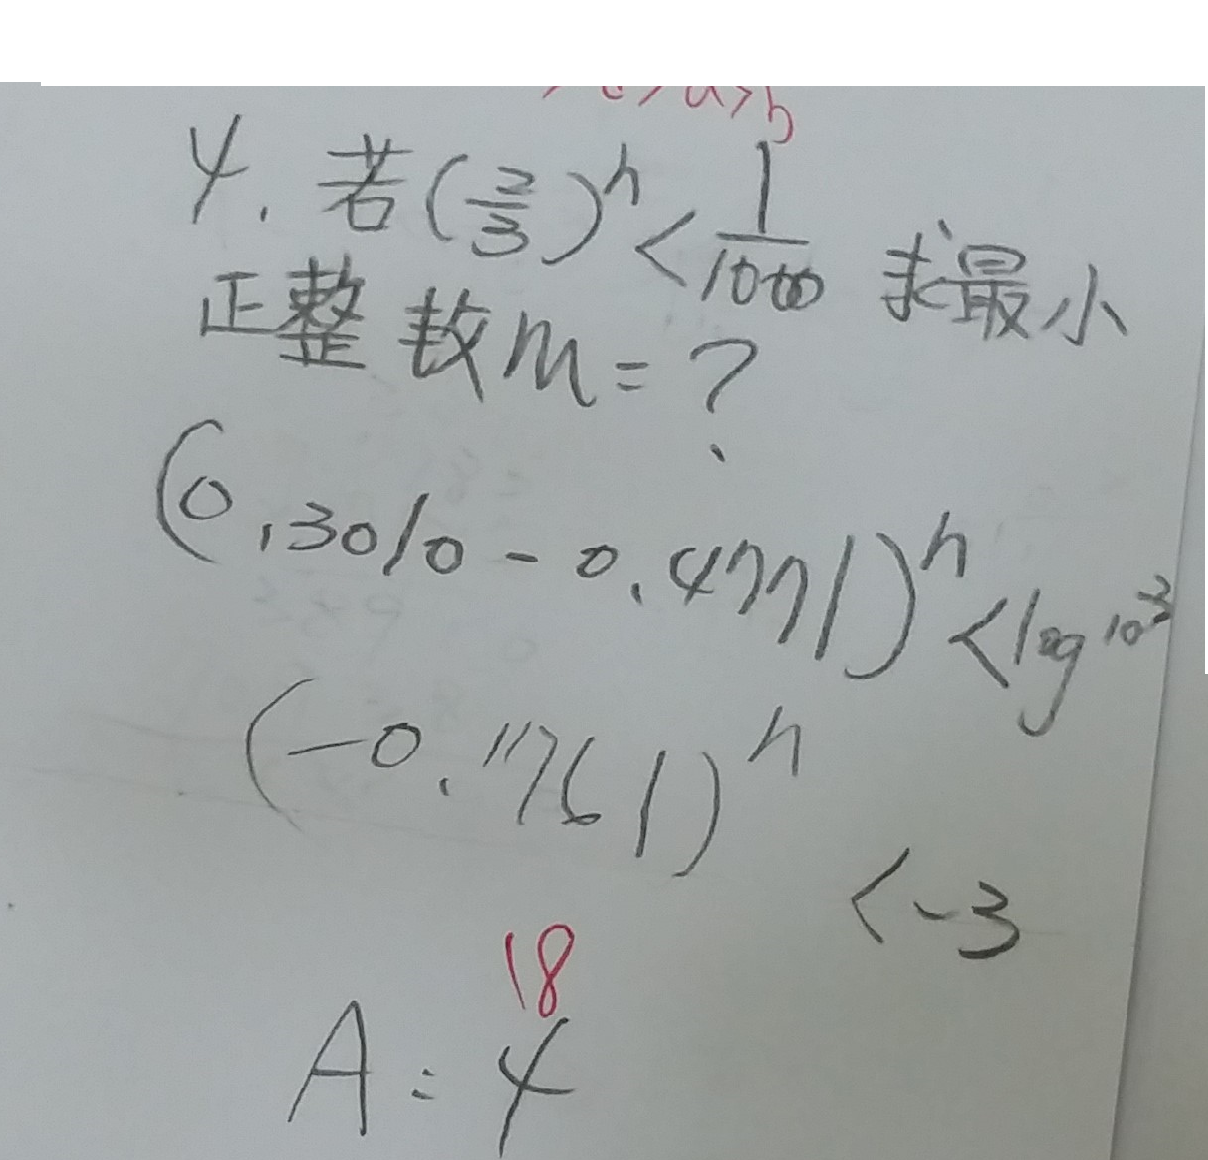 4. 若(2/3)^n < 1/1000 求最小
正整数m=?
(0.3010-0.4771)^n < log 10^3
(-0.1761)^n
< -3
18
A:4